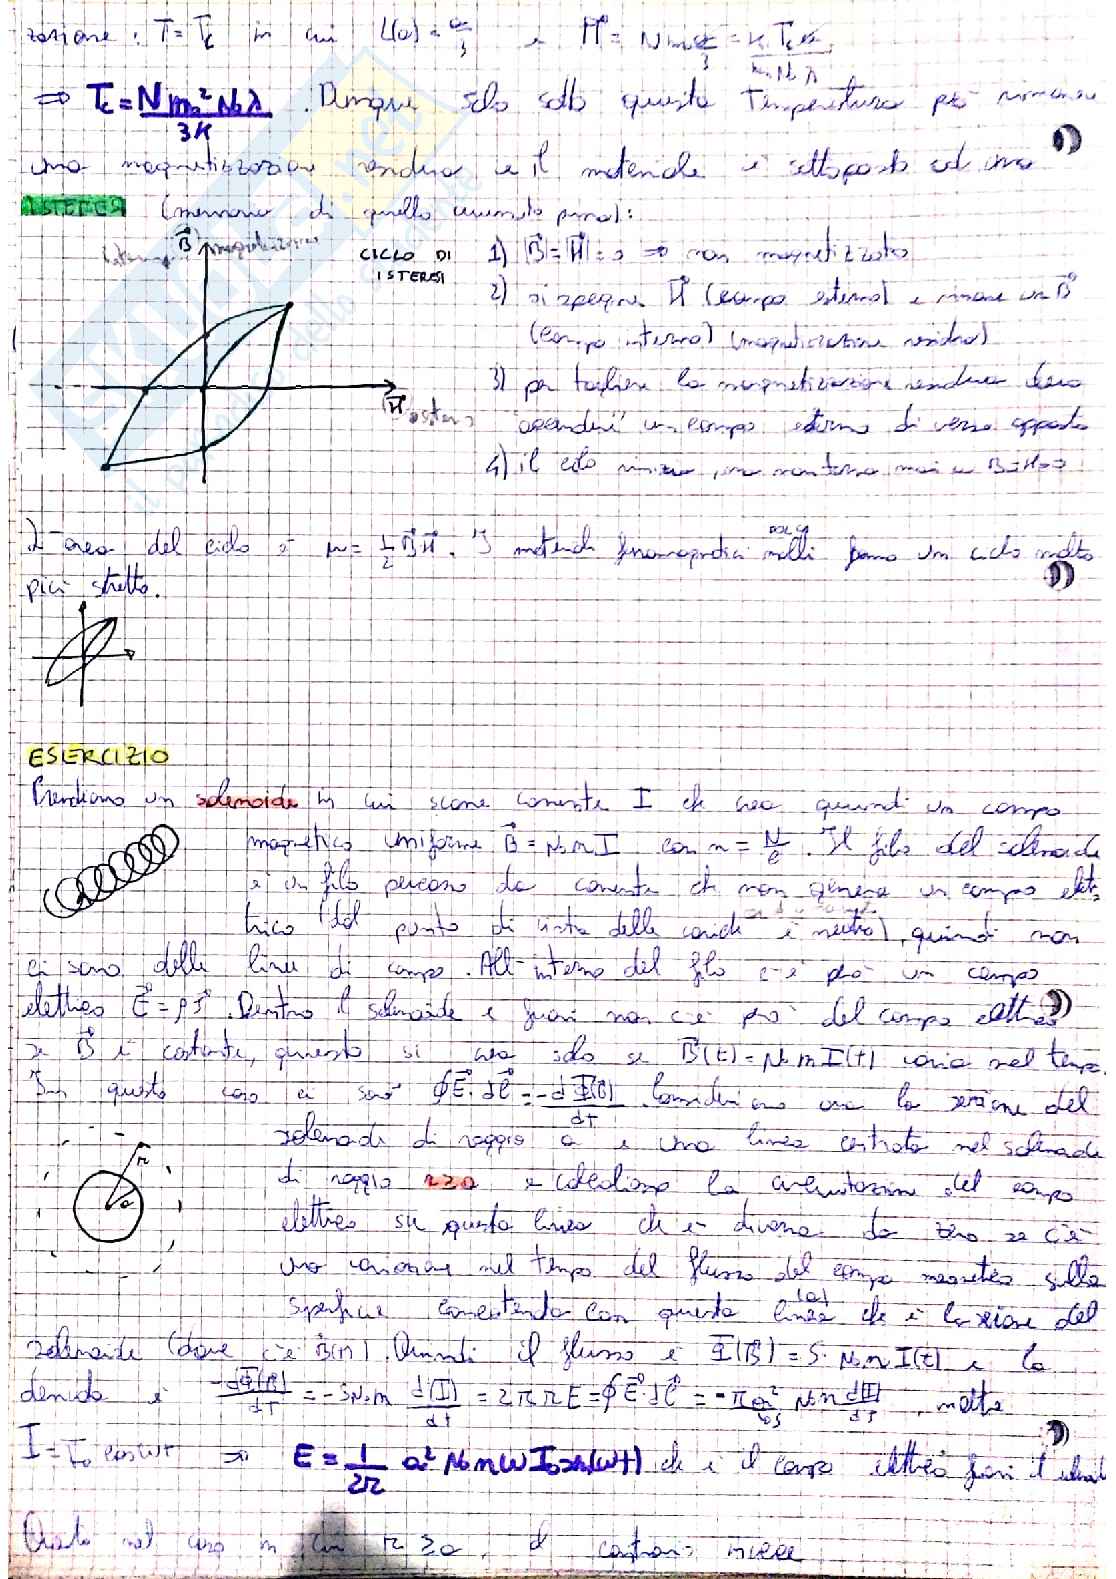 T = Tc in cui L(a) = a/3 e M =
⇒ Tc = N m₀² μ₀ λ / 3K . Dunque solo sotto questa Temperatura può rimanere
una magnetizzazione residua e il materiale è sottoposto ad una
ISTERESI (memoria di quello avvenuto prima):
B magnetizzazione CICLO DI ISTERESI
1) |B| = |H| = 0 ⇒ non magnetizzato
2) si spegne H (campo esterno) e rimane un B
(campo interno) (magnetizzazione residua)
3) per togliere la magnetizzazione residua devo
"accendere" un campo esterno di verso opposto
H esterno
4) il ciclo inizia, ma non torna mai a B=H=0
L'area del ciclo è u = 1/2 B H . I materiali ferromagnetici molli fanno un ciclo molto
più stretto.
ESERCIZIO
Prendiamo un solenoide in cui scorre corrente I che crea quindi un campo
magnetico uniforme B = μ₀ n I con n = N/l . Il filo del solenoide
è un filo percorso da corrente che non genera un campo elet-
trico (dal punto di vista delle cariche è neutro), quindi non
ci sono delle linee di campo. All'interno del filo c'è però un campo
elettrico E = ρJ . Dentro il solenoide e fuori non c'è però del campo elettrico
se B è costante, questo si crea solo se B(t) = μ₀ n I(t) varia nel tempo.
In questo caso ci sarà ∮E·dl = -dΦ(B)/dt . Consideriamo ora la sezione del
solenoide di raggio a e una linea centrata nel solenoide
r
a
di raggio r≥a e calcoliamo la circuitazione del campo
elettrico su questa linea che è diversa da zero se c'è
una variazione nel tempo del flusso del campo magnetico sulla
superficie concatenata con questa linea che è la sezione del
solenoide (dove c'è B(t)). Quindi il flusso è Φ(B) = S·μ₀ n I(t) e la
derivata è -dΦ(B)/dt = -S μ₀ n d(I)/dt = 2πrE = ∮E·dl = -πa² μ₀ n d(I)/dt , metto
I = I₀ cos ωt ⇒ E = 1/2r a² μ₀ n ω I₀ sin(ωt) che è il campo elettrico fuori il
Questo nel caso in cui r≥a, al contrario invece